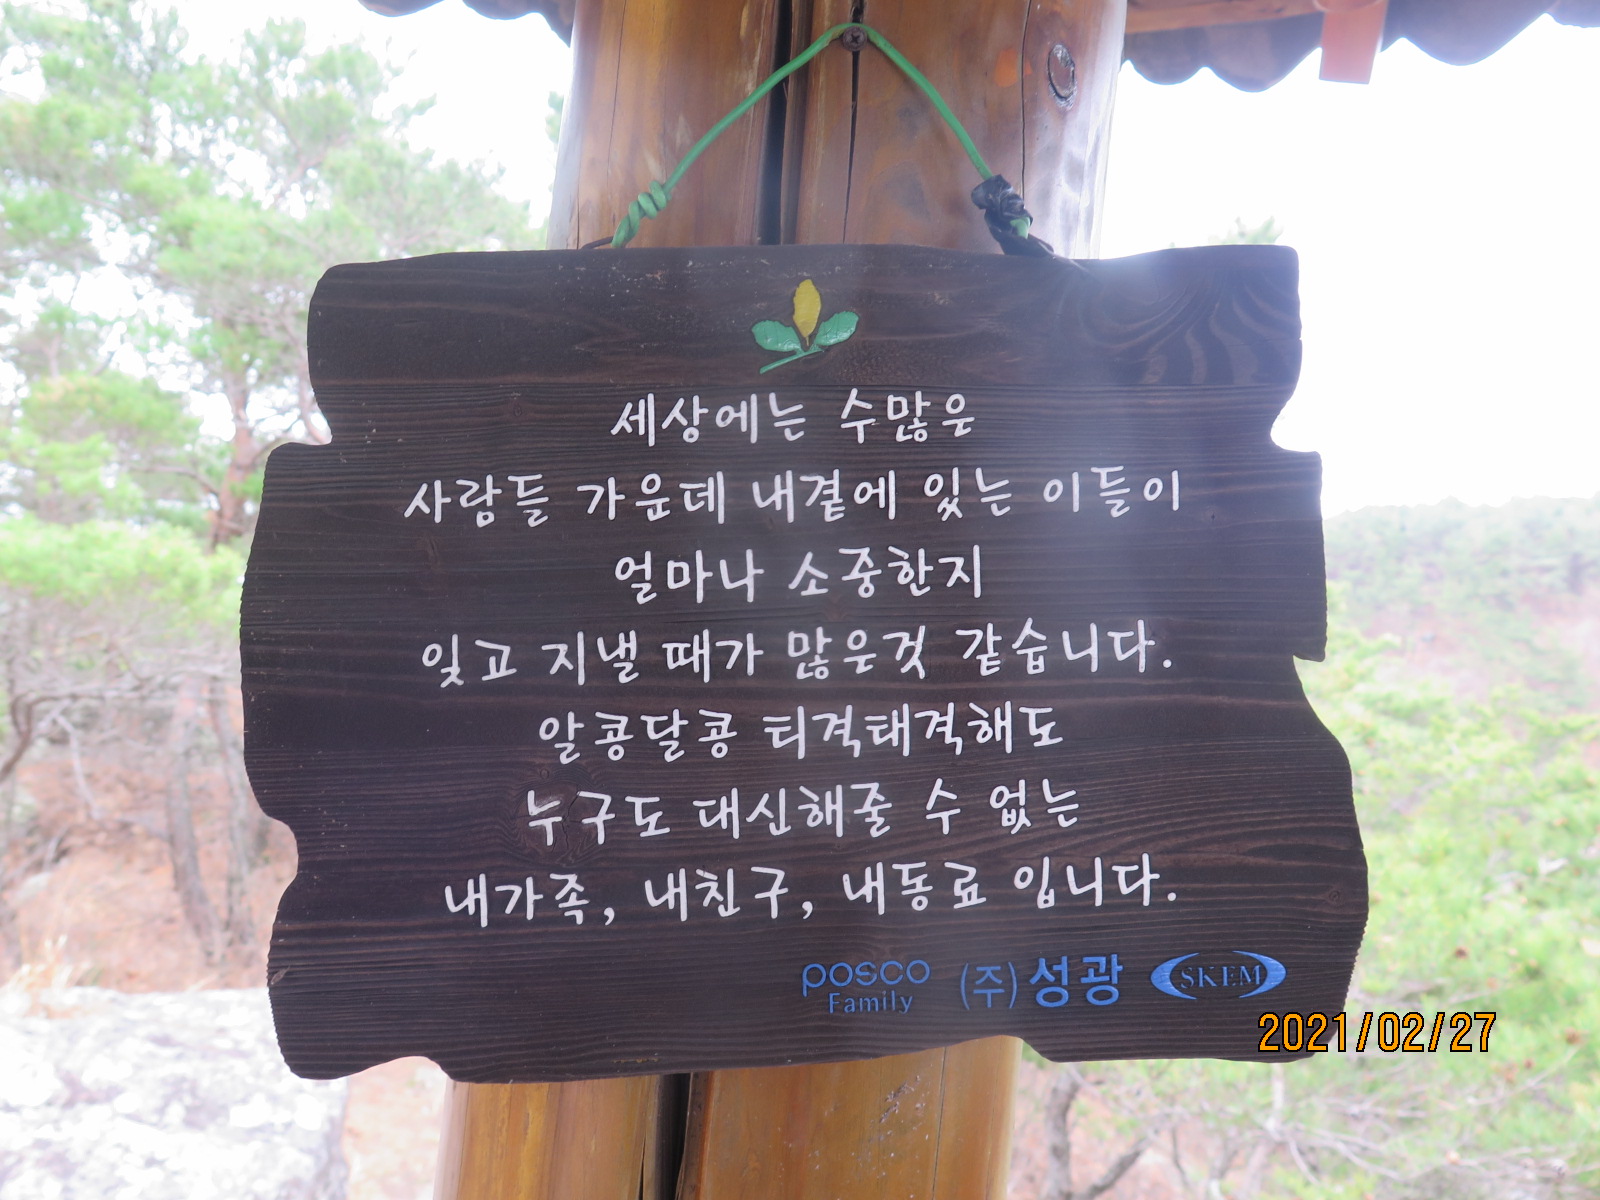 세상에는 수많은
사람들 가운데 내곁에 있는 이들이
얼마나 소중한지
잊고 지낼 때가 많은것 같습니다.
알콩달콩 티격태격해도
누구도 대신해줄 수 없는
내가족, 내친구, 내동료 입니다.
posco
Family
(주)성광
SKEM
2021/02/27